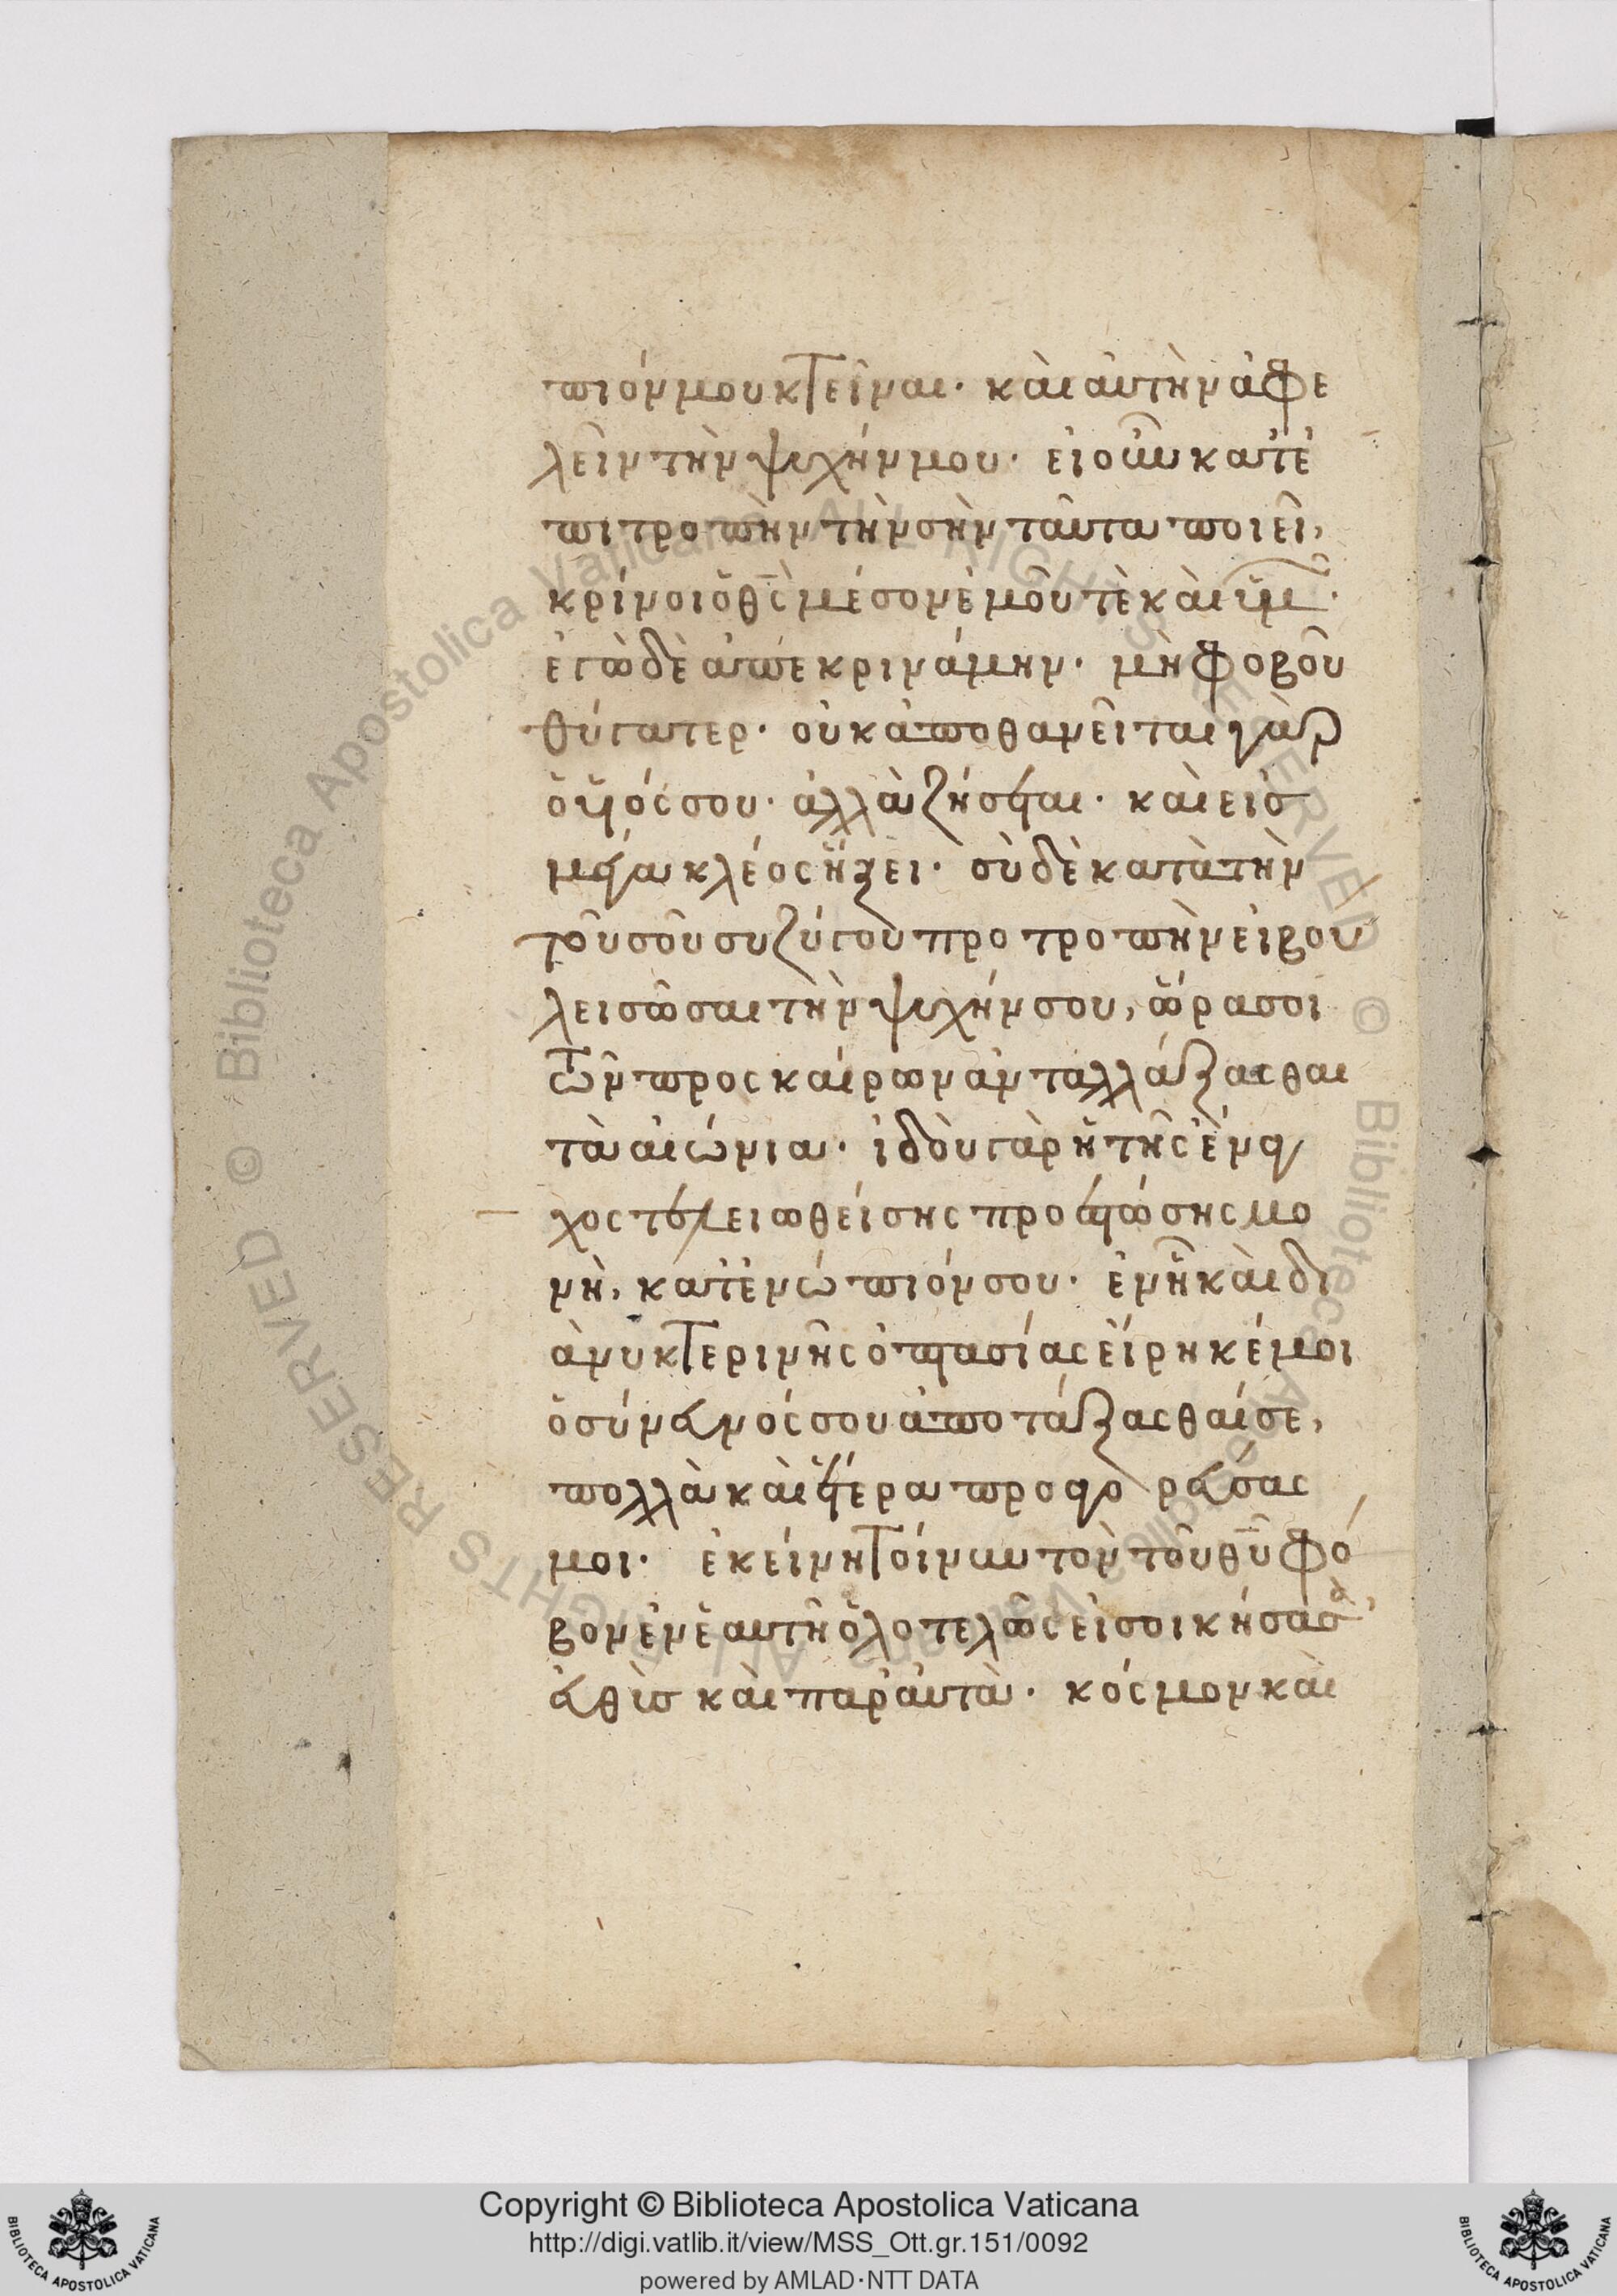 πιόν μου κτεῖναι· καὶ αὐτὴν ἀφε
λεῖν τὴν ψυχήν μου· εἰ οὖν κατ ἐ
πιτροπὴν τὴν σὴν ταῦτα ποιεῖ,
κρίνοι ὁ θς μέσον ἐμοῦ τὲ καὶ ὑμ·
ἐγὼ δὲ ἀπεκρινάμην· μὴ φοβοῦ
θύγατερ· οὐκ ἀποθανεῖται γὰρ
ὁ υἱός σου· ἀλλὰ ζήσεται· καὶ εἰσ
μέγα κλέος ἥξει· σὺ δὲ κατὰ τὴν
τοῦ σοῦ συζύγου προτροπὴν εἰ βού
λει σῶσαι τὴν ψυχήν σου, ὥρα σοι
τῶν προσκαίρων ἀνταλλάξασθαι
τὰ αἰώνια· ἰδοὺ γὰρ ἡ τῆς ἔναγ
χος τελειωθείσης προεστώσης μο
νὴ, κατενώπιόν σου· ἐν ἧ καὶ δι
ὰ νυκτερινῆς ὀπτασίας εἴρηκέ μοι
ὁ σύνευνός σου ἀποτάξασθαί σε,
πολλὰ καὶ ἕτερα προσαγορεύσας
μοι· ἐκείνη τοίνυν τὸν τοῦ θυ φό
βον ἐν ἑαυτῆ ὁλοτελῶς εἰσοικήσασα,
εὐθὺσ καὶ παρ αὐτὰ· κόσμον καὶ
Copyright © Biblioteca Apostolica Vaticana
http://digi.vatlib.it/view/MSS_Ott.gr.151/0092
powered by AMLAD·NTT DATA